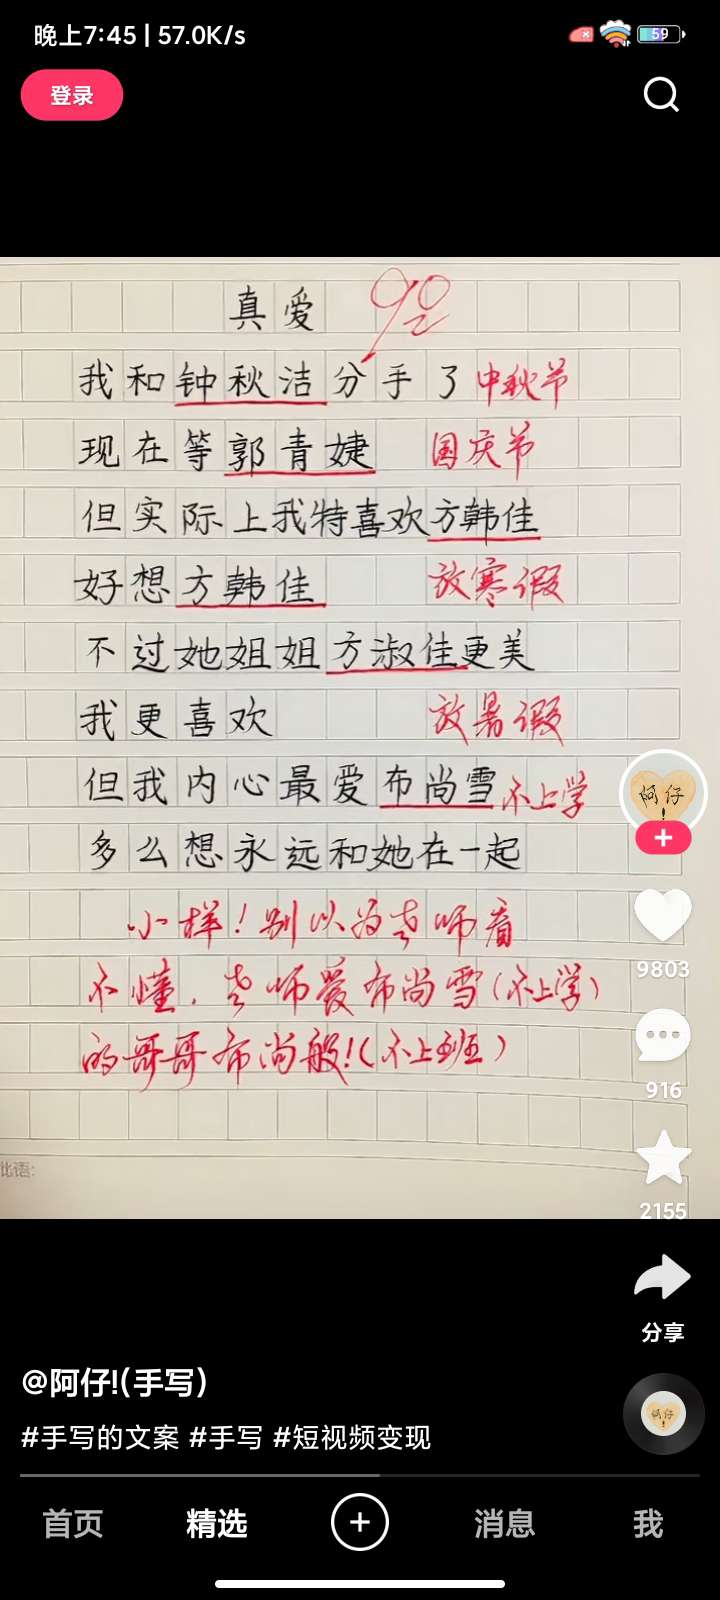 晚上7:45 | 57.0K/s
59
登录
真爱 90
我和钟秋洁分手了 中秋节
现在等郭青婕 国庆节
但实际上我特喜欢方韩佳
好想方韩佳 放寒假
不过她姐姐方淑佳更美
我更喜欢 放暑假
但我内心最爱布尚雪 不上学
多么想永远和她在一起
小样！别以为老师看
不懂，老师爱布尚雪(不上学)
的哥哥布尚般!(不上班)
批语:
阿仔!
9803
916
2155
分享
@阿仔!(手写)
#手写的文案 #手写 #短视频变现
阿仔
首页 精选 消息 我